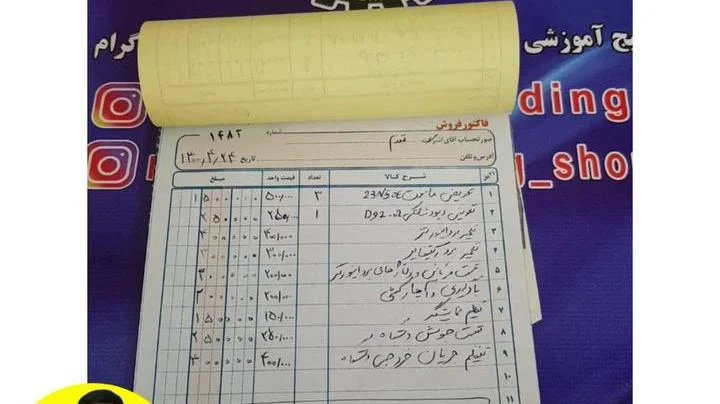 یج آموزشی
گرام
ding
g_shop
فاکتور فروش
شماره ۱۴۸۲
صورتحساب آقای
آدرس و تلفن
تاریخ ۱۴۰۰/۴/۲۴
شرح کالا تعداد قیمت واحد مبلغ
۱ تعویض ماسفت 23N50E ۳ ۵۰/۰۰۰ ۱۵۰۰۰۰
۲ تعویض دیود شاتکی D92-02 ۱ ۲۵۰/۰۰۰ ۲۵۰۰۰۰
۳ تعمیر برد اینورتر ۴۰۰/۰۰۰ ۴۰۰۰۰۰
۴ تعمیر برد رکتیفایر ۳۰۰/۰۰۰ ۳۰۰۰۰۰
۵ تست فرمان و ولتاژهای برد اینورتر ۲۰۰/۰۰۰
۶ باد گیری و آچار کشی ۲۰۰/۰۰۰ ۲۰۰۰۰۰
۷ تنظیم نمایشگر ۱۵۰/۰۰۰ ۱۵۰۰۰۰
۸ تست جوش دستگاه ۲۵۰/۰۰۰ ۲۵۰۰۰۰
۹ تنظیم جریان خروجی دستگاه ۴۰۰/۰۰۰ ۴۰۰۰۰۰
۱۰
۱۱